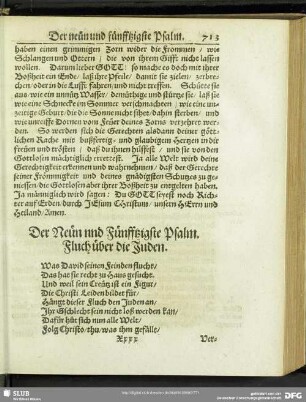 Der neün und fünffzigste Psalm. 713
haben einen grimmigen Zorn wider die Frommen / wie
Schlangen und Ottern / die von ihrem Gifft nicht lassen
wollen. Darum lieber GOTT! so mache es doch mit ihrer
Bosheit ein Ende / laß ihre Pfeile / damit sie zielen / zerbre-
chen / oder in die Lufft fahren / und nicht treffen. Schütte sie
aus wie ein unnütz Wasser / demütige und stürtze sie / laß sie
wie eine Schnecke im Sommer verschmachten / wie eine un-
zeitige Geburt / die die Sonne nicht sihet / dahin sterben / und
wie unreiffe Dornen vom Feüer deines Zorns verzehret wer-
den. So werden sich die Gerechten alsdann deiner gött-
lichen Rache mit bußfertig- und glaubigem Hertzen in dir
freüen und trösten / daß du ihnen hilffest / und sie von den
Gottlosen mächtiglich errettest. Ja alle Welt wird deine
Gerechtigkeit erkennen und wahrnehmen / daß der Gerechte
seiner Frömmigkeit und deines gnädigsten Schutzes zu ge-
niessen / die Gottlosen aber ihrer Bosheit zu entgelten haben.
Ja männiglich wird sagen: Du GOTT seyest noch Rich-
ter auf Erden / durch JEsum Christum / unsern HErrn und
Heiland / Amen.
Der Neün und Fünffzigste Psalm.
Fluch über die Juden.
Was David seinen Feinden flucht /
Das hat sie recht zu Haus gesucht.
Und weil sein Creütz ist ein Figur /
Die Christi Leiden bildet für /
Hängt dieser Fluch den Juden an /
Ihr Gschlecht sein nicht loß werden kan /
Dafür hüt sich nun alle Welt /
Folg Christo / thu / was ihm gefälle /
Xxxx Ver-
SLUB
DFG